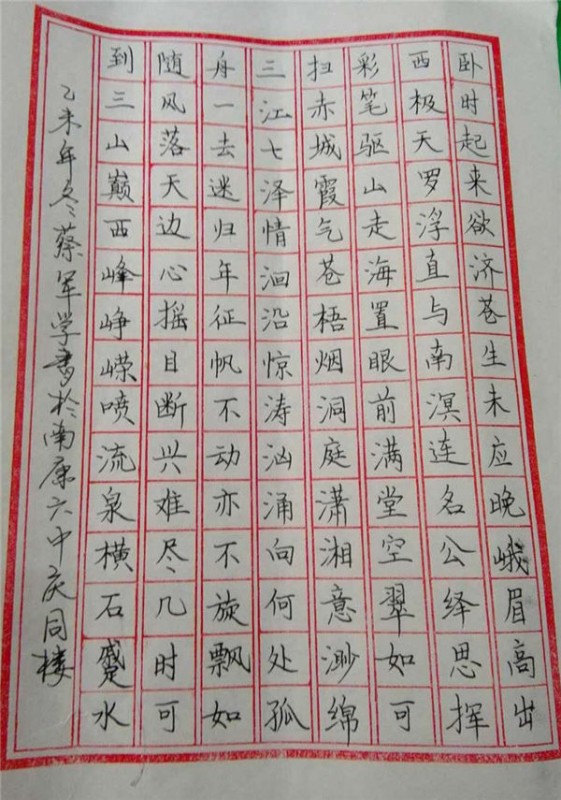 卧时起来欲济苍生未应晚峨眉高出
西极天罗浮直与南溟连名公绎思挥
彩笔驱山走海置眼前满堂空翠如可
扫赤城霞气苍梧烟洞庭潇湘意渺绵
三江七泽情洄沿惊涛汹涌向何处孤
舟一去迷归年征帆不动亦不旋飘如
随风落天边心摇目断兴难尽几时可
到三山巅西峰峥嵘喷流泉横石蹙水
乙未年冬蔡军学书于南原六中庆同楼